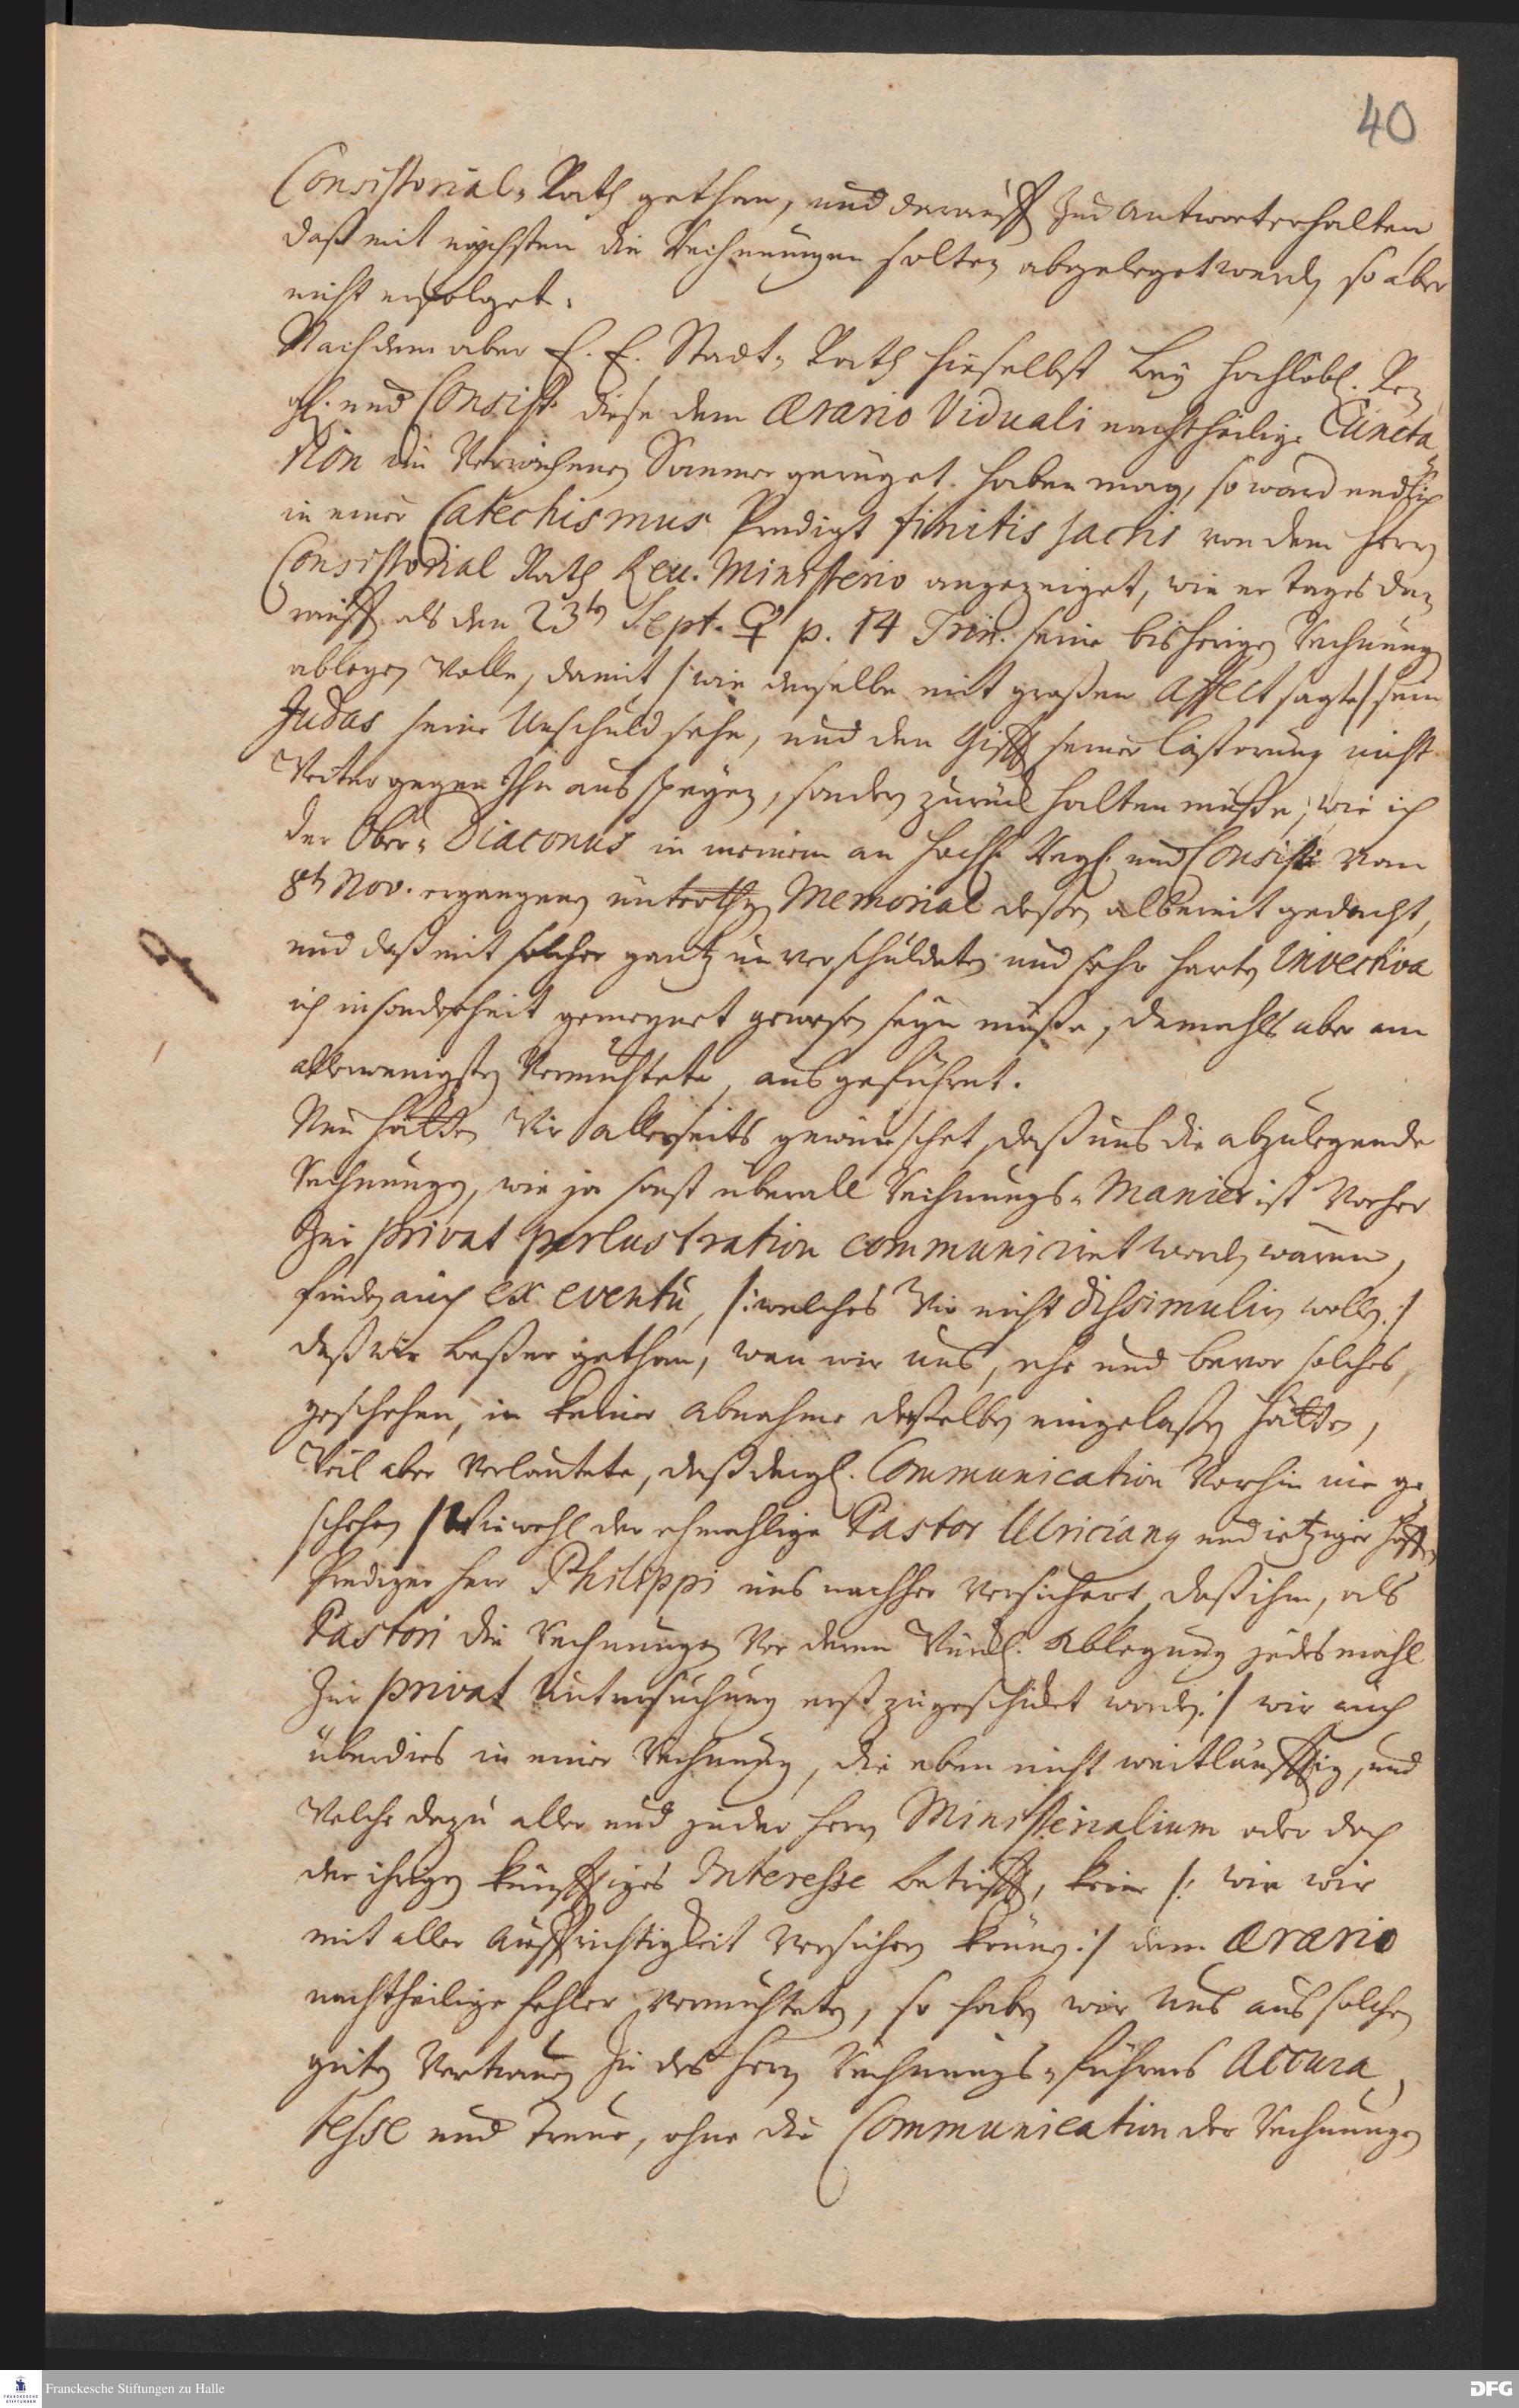 40
Consistorial-Rath gethan, und darauff zur Antwort erhalten,
daß mit nächsten die Rechnungen solten abgeleget werden, so aber
nicht erfolget.
Nachdem aber E. E. Stadt-Rath hieselbst bey Hochlöbl. Re-
gl. und Consist. diese dem Ærario Viduali nachtheilige Cuncta-
tion im verwichenen Sommer gerüget haben mag, so ward endlich
in einer Catechismus Predigt finitis sacris von dem Herrn
Consistorial Rath Rev. Ministerio angezeiget, wie er tages dar-
auff als den 23ten Sept. ♀ p. 14 Trin. seine bisherigen Rechnungen
ablegen wolle, damit /: wie derselbe mit großen Affect sagte :/ sein
Judas seine Unschuld sehe, und den Gifft seiner Lästerung nicht
weiter gegen Ihn ausspeyen, sondern zurück halten müße, wie ich
der Ober-Diaconus in meinem an Hochl. Regl. und Consist. vom
8ten Nov. ergangenen unterthgn Memorial deßen albereit gedacht,
und daß mit solcher gantz unverschuldeten und sehr harten Invectiva
ich insonderheit gemeynet gewesen seyn müße, damahls aber am
allerwenigsten vermuthete, ausgeführet.
Nun hätten wir allerseits gewünschet, daß uns die abzulegende
Rechnungen, wie ja sonst überall Rechnungs-Manier ist vorher
zur privat perlustration communiciret worden wären,
finden auch ex eventu, /: welches wir nicht dissimuliren wollen :/
daß wir beßer gethan, wan wir uns, ehe und bevor solches
geschehen, in keiner Abnahme derselben eingelaßen hätten,
Weil aber verlautete, daß dergl. Communication vorhin nie ge-
schehen /: Wiewohl der ehmahlige Pastor Ulricianus und ietziger Hoff-
Prediger Herr Philippi uns nachher versichert, daß ihm, als
Pastori die Rechnungen vor deren würckl. Ablegung jedesmahl
zur privat Untersuchung erst zugeschicket worden :/ wir auch
überdies in einer Rechnung, die eben nicht weitläufftig, und
welche dazu aller und jeder Herrn Ministerialium oder doch
der ihrigen künfftiges Interesse betrifft, keine /: wie wir
mit aller Auffrichtigkeit versichern können :/ dem Ærario
nachtheilige Fehler vermutheten, so haben wir uns aus solchem
guten Vertrauen zu des Herrn Rechnungs-führers Accura-
tesse und Treue, ohne die Communication der Rechnungen
Franckesche Stiftungen zu Halle
DFG